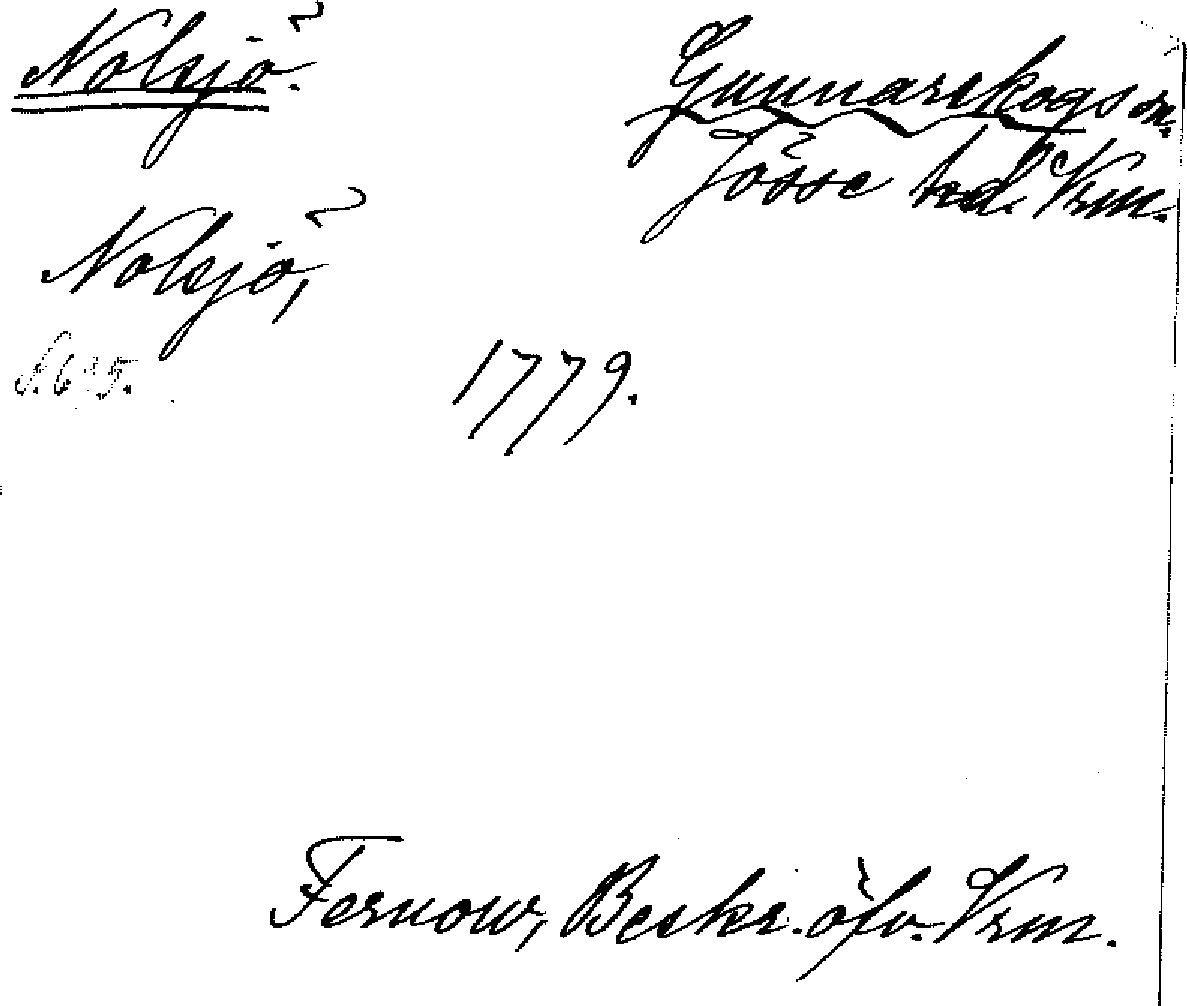 Nolsjö.
Gunnarskogs sn.
Jösse hd. Vrm.
Nolsjö,
1779.
Fernow, Beskr. öfv. Vrm.